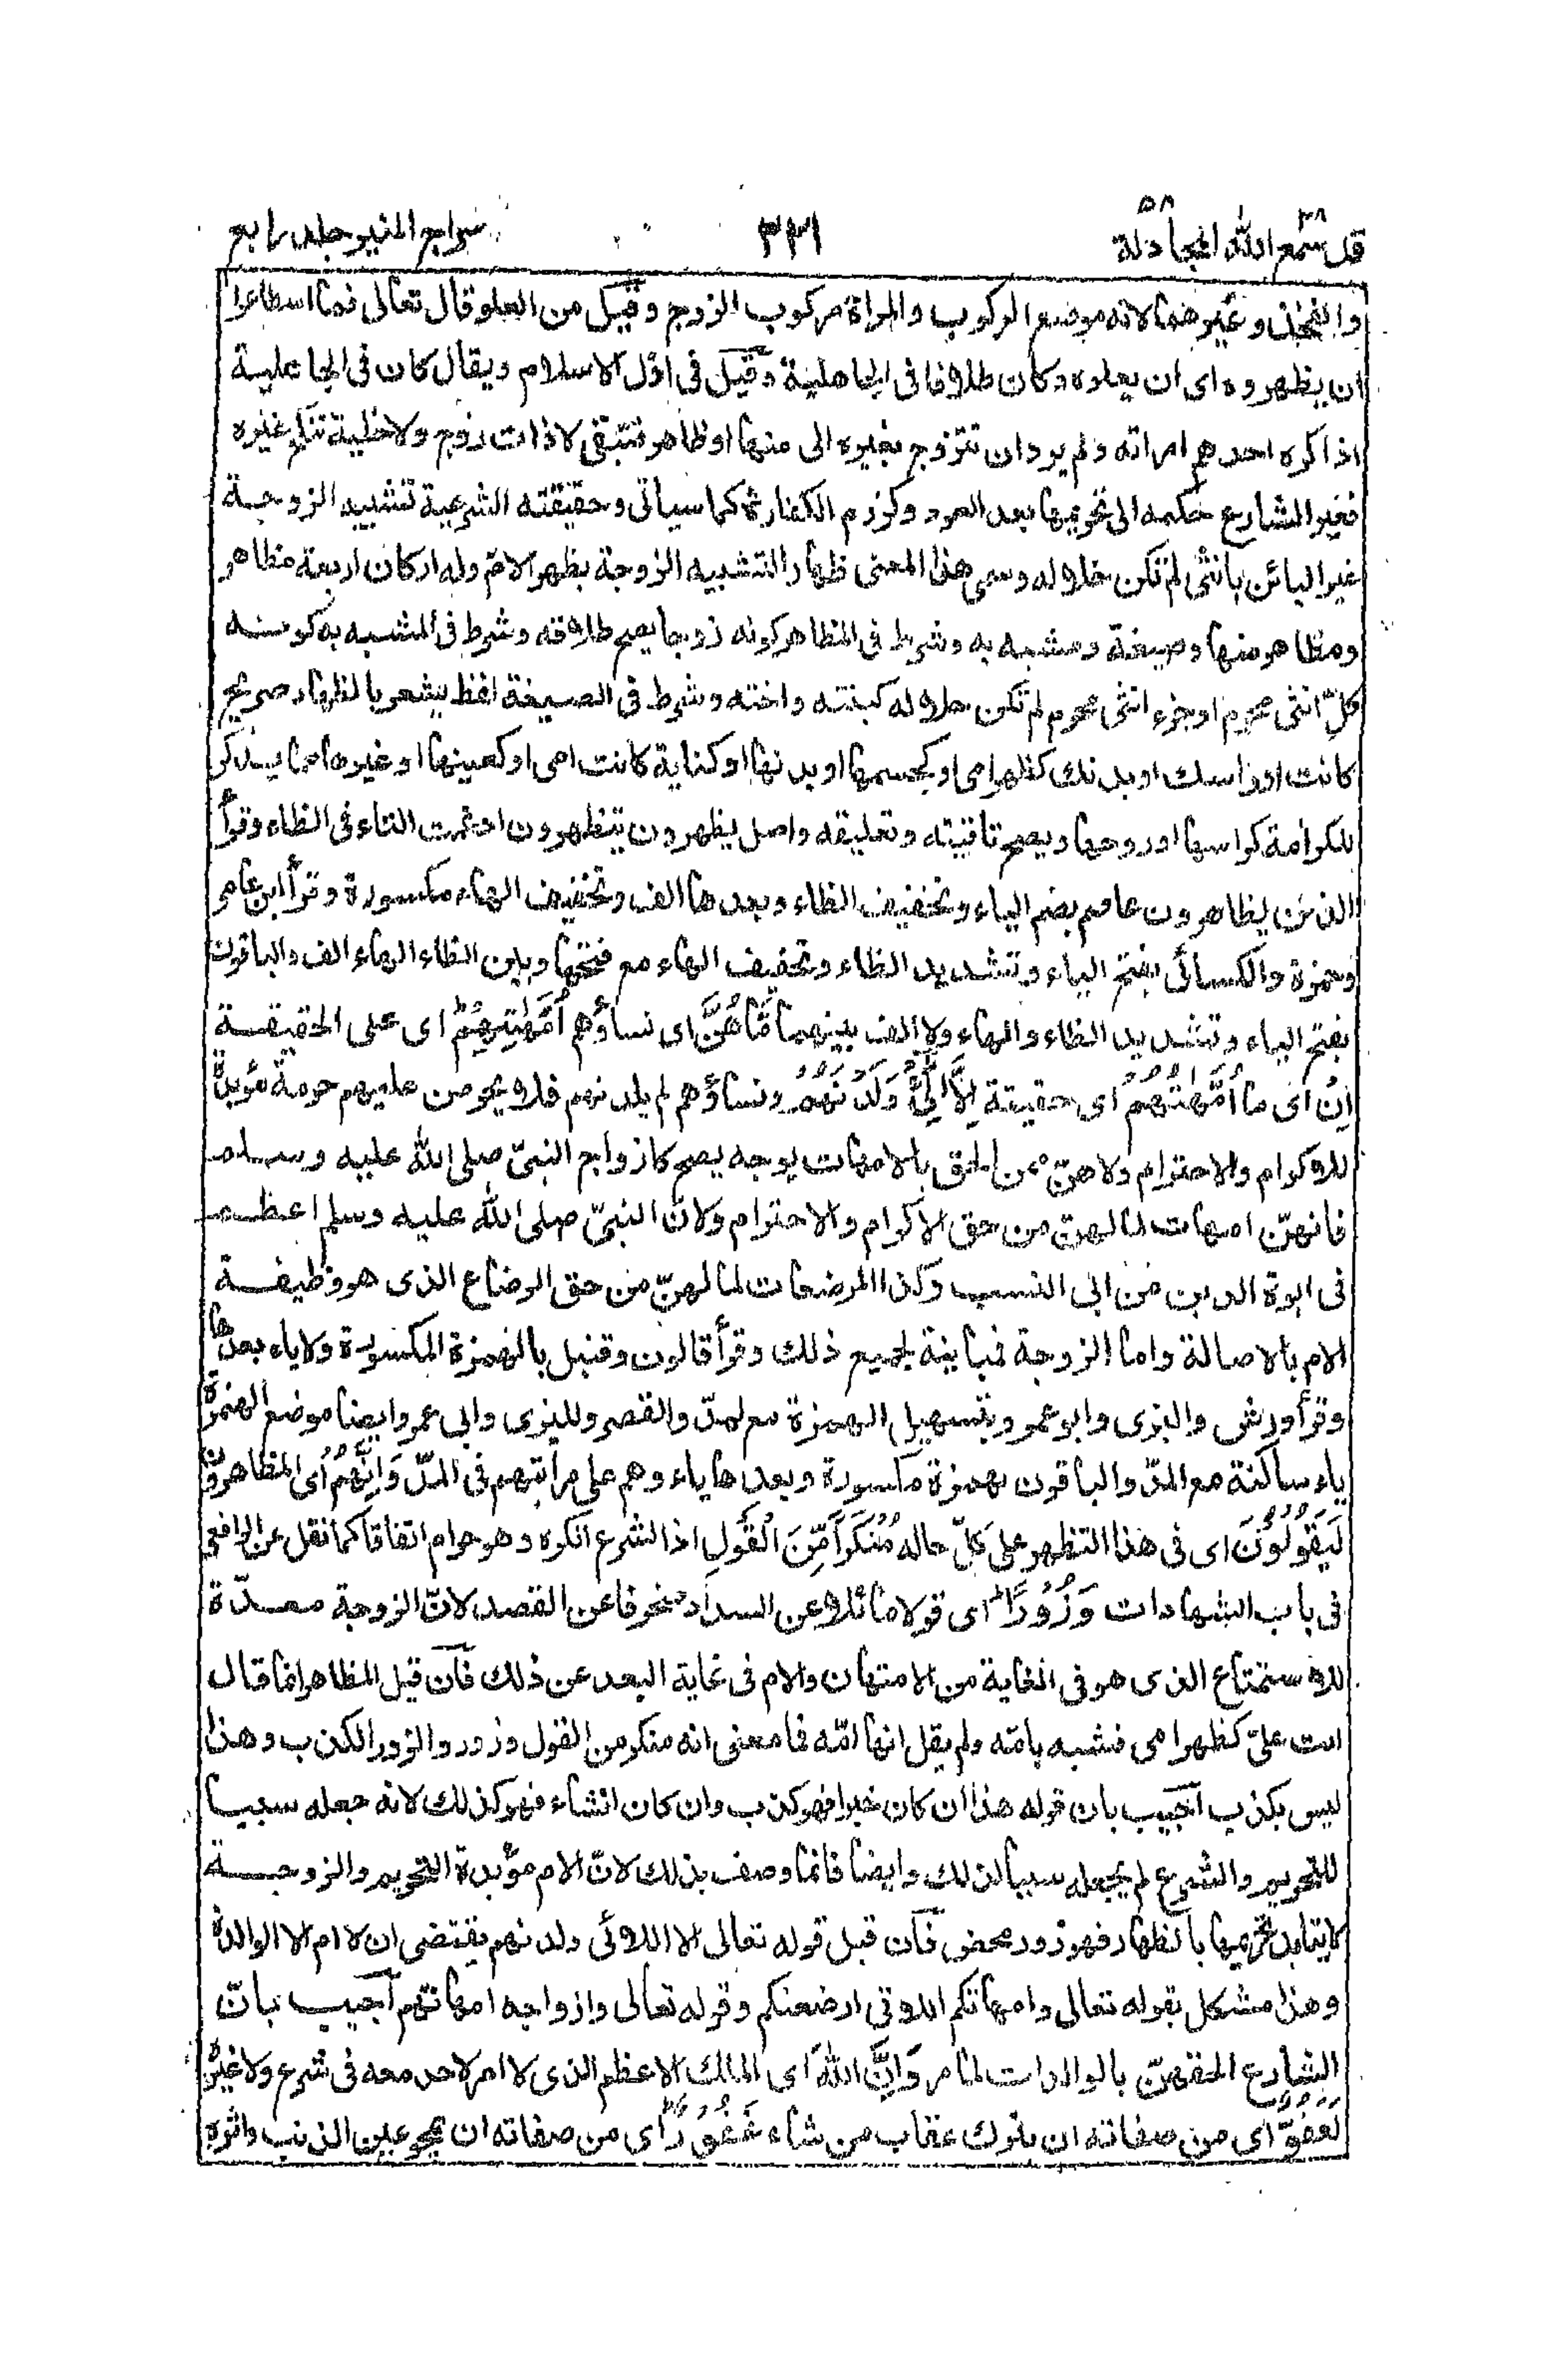 قد سمع الله ٢٨ المجادلة ٥٨
٣٣١
سراج المنير جلد رابع
والفخذ وغيرهما لانه موضع الركوب والمراة مركوب الزوج وقيل من العلو قال تعالى فما اسطاعوا
ان يظهروه اى ان يعلوه وكان طلاقا فى الجاهلية وقيل فى اول الاسلام ويقال كان فى الجاهلية
اذا كره احدهم امراته ولم يرد ان تتزوج بغيره الى منها او ظاهر فتبقى لا ذات زوج ولا خلية تنكح غيره
فغير الشارع حكمه الى تحريمها بعد العود ولزوم الكفارة كما سياتى وحقيقته الشرعية تشبيه الزوجة
غير البائن بانثى لم تكن حلا له وسمى هذا المعنى ظهارا لتشبيه الزوجة بظهر الام وله اركان اربعة مظاهر
ومظاهر منها وصيغة ومشبه به وشرط فى المظاهر كونه زوجا يصح طلاقه وشرط فى المشبه به كونه
كل انثى محرم او جزء انثى محرم لم تكن حلا له كبنته واخته وشرط فى الصيغة لفظ يشعر بالظهار صريح
كانت او راسك او بدنك كظهر امى او كجسمها او بدنها او كناية كانت امى او كعينها او غيرها مما يذكر
للكرامة كراسها او روحها ويصح تاقيته وتعليقه واصل يظهرون يتظهرون ادغمت التاء فى الظاء وقرأ
الذين يظاهرون عاصم بضم الياء وتخفيف الظاء وبعدها الف وتخفيف الهاء مكسورة وقرأ ابن عامر
وحمزة والكسائى بفتح الياء وتشديد الظاء وتخفيف الهاء مع فتحها وبين الظاء الهاء الف والباقون
بفتح الياء وتشديد الظاء والهاء ولا الف بينهما مَّا هُنَّ اى نساؤهم اُمَّهٰتِهِمْ اى على الحقيقة
اِنْ اى ما اُمَّهٰتُهُمْ اى حقيقة اِلَّا الّٰٓـِٔیْ وَلَدْنَهُمْ ونساؤهم لم يلدنهم فلا يحرمن عليهم حرمة مؤبدة
للاكرام والاحترام ولا هنّ ممن الحق بالامهات بوجه يصح كازواج النبىّ صلى الله عليه وسلم
فانهنّ امهات لما لهنّ من حق الاكرام والاحترام ولان النبىّ صلى الله عليه وسلم اعظم
فى ابوة الدين من ابى النسب وكذا المرضعات لما لهنّ من حق الرضاع الذى هو وظيفة
الام بالاصالة واما الزوجة فمباينة لجميع ذلك وقرأ قالون وقنبل بالهمزة المكسورة ولا ياء بعدها
وقرأ ورش والبزى وابو عمرو بتسهيل الهمزة مع المدّ والقصر وللبزى وابى عمرو ايضا موضع الهمزة
ياء ساكنة مع المدّ والباقون بهمزة مكسورة وبعدها ياء وهم على مراتبهم فى المدّ وَاِنَّهُمْ اى المظاهرون
لَيَقُوْلُوْنَ اى فى هذا التظهر على كلّ حاله مُنْكَرًا مِّنَ الْقَوْلِ اذ الشرع انكره وهو حرام اتفاقا كما نقل عن الرافعى
فى باب الشهادات وَزُوْرًا اى قولا مائلا عن السداد منحرفا عن القصد لانّ الزوجة معدّة
للاستمتاع الذى هو فى الغاية من الامتهان والام فى غاية البعد عن ذلك فان قيل المظاهر انما قال
انت علىّ كظهر امى فشبه بامّه ولم يقل انها امّه فما معنى انه منكر من القول وزور والزور الكذب وهذا
ليس بكذب اجيب بان قوله هذا ان كان خبرا فهو كذب وان كان انشاء فهو كذلك لانه جعله سببا
للتحريم والشرع لم يجعله سببا لذلك وايضا فانما وصف بذلك لانّ الام مؤبدة التحريم والزوجة
لا يتابد تحريمها بالظهار فهو زور محض فان قيل قوله تعالى الا اللائى ولدنهم يقتضى ان لا ام الا الوالدة
وهذا مشكل بقوله تعالى وامهاتكم اللاتى ارضعنكم وقوله تعالى وازواجه امهاتهم اجيب بانّ
الشارع الحقهنّ بالوالدات لما مر وَاِنَّ اللهَ اى المالك الاعظم الذى لا امر لاحد معه فى شرع ولا غيره
لَعَفُوٌّ اى من صفاته ان يترك عقاب من شاء غَفُوْرٌ اى من صفاته ان يمحو عين الذنب واثره